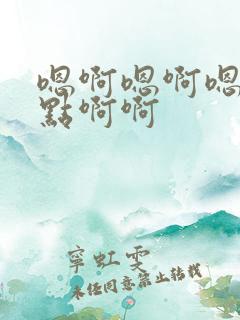 嗯啊嗯啊嗯
點啊啊
寧虹雯
未经同意禁止转载